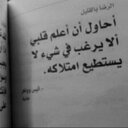 الرضا بالقليل
أحاول أن أعلم قلبي
ألا يرغب في شيء لا
يستطيع امتلاكه.